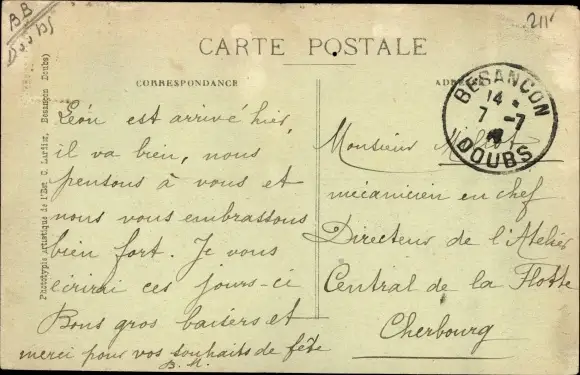 BB
Doubs
211
CARTE POSTALE
CORRESPONDANCE
Léon est arrivé hier,
il va bien, nous
pensons à vous et
nous vous embrassons
bien fort. Je vous
écrirai ces jours-ci
Bons gros baisers et
merci pour vos souhaits de fête
B. M.
BESANCON
14
7 -7
DOUBS
Monsieur
mécanicien en chef
Directeur de l'Atelier
Central de la Flotte
Cherbourg
Phototypie Artistique de l'Est, C. Lardier, Besançon (Doubs)